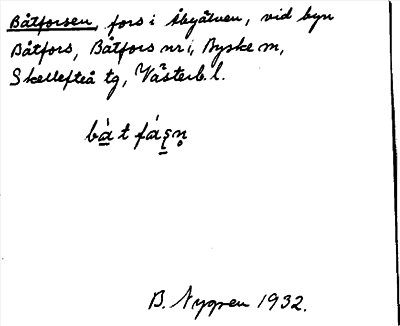 Båtforsen, fors i Åbyälven, vid byn
Båtfors, Båtfors nr 1, Byske m,
Skellefteå tg, Västerb. l.
bàt fáʂn̥
B. Nygren 1932.